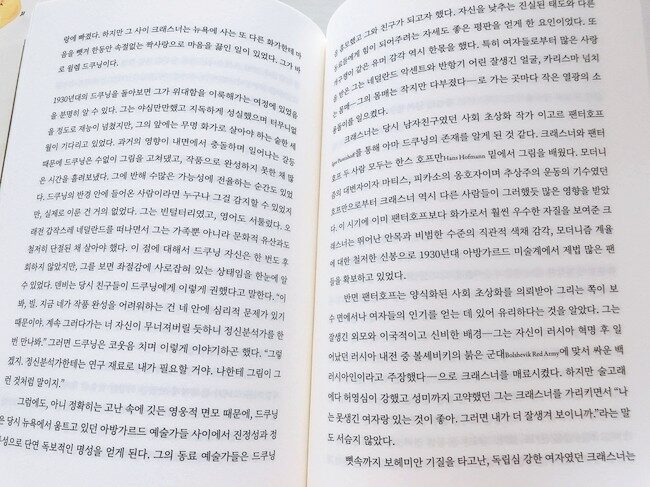 랑에 빠졌다. 하지만 그 사이 크래스너는 뉴욕에 사는 또 다른 화가한테 마
음을 뺏겨 한동안 속절없는 짝사랑으로 마음을 끓인 일이 있었다. 그가 바
로 윌렘 드쿠닝이다.
1930년대의 드쿠닝을 돌아보면 그가 위대함을 이룩해가는 여정에 있었음
을 분명히 알 수 있다. 그는 야심만만했고 지독하게 성실했으며 터무니없
을 정도로 재능이 넘쳤지만, 그의 앞에는 무명 화가로 살아야 하는 숱한 세
월이 기다리고 있었다. 과거의 영향이 내면에서 충돌하며 일어나는 갈등
때문에 드쿠닝은 수없이 그림을 고쳐냈고, 작품으로 완성하지 못한 채 많
은 시간을 흘려보냈다. 그에 반해 수많은 가능성에 전율하는 순간도 있었
다. 드쿠닝의 반경 안에 들어온 사람이라면 누구나 그걸 감지할 수 있었지
만, 실제로 이룬 건 거의 없었다. 그는 빈털터리였고, 영어도 서툴렀다. 오
래전 갑작스레 네덜란드를 떠나면서 그는 가족뿐 아니라 문화적 유산과도
철저히 단절된 채 살아야 했다. 이 점에 대해서 드쿠닝 자신은 한 번도 후
회하지 않았지만, 그를 보면 좌절감에 사로잡혀 있는 상태임을 한눈에 알
수 있었다. 덴비는 당시 친구들이 드쿠닝에게 이렇게 권했다고 말한다. “이
봐, 빌. 지금 네가 작품 완성을 어려워하는 건 네 안에 심리적 문제가 있기
때문이야. 계속 그러다가는 너 자신이 무너져버릴 듯하니 정신분석가를 한
번 만나봐.” 그러면 드쿠닝은 코웃음 치며 이렇게 이야기하곤 했다. “그렇
겠지. 정신분석가한테는 연구 재료로 내가 필요할 거야. 나한테 그림이 그
런 것처럼 말이지.”
그럼에도, 아니 정확히는 고난 속에 깃든 영웅적 면모 때문에, 드쿠닝
은 당시 뉴욕에서 움트고 있던 아방가르드 예술가들 사이에서 진정성과 정
성으로 단연 독보적인 명성을 얻게 된다. 그의 동료 예술가들은 드쿠닝
을 흠모했고 그와 친구가 되고자 했다. 자신을 낮추는 진실된 태도와 다른
동료들에게 힘이 되어주려는 자세도 좋은 평판을 얻게 한 요인이었다. 또
같은 유머 감각 역시 한몫을 했다. 특히 여자들로부터 많은 사랑
을 받은 그는 네덜란드 악센트와 반항기 어린 잘생긴 얼굴, 카리스마 넘치
는 몸매—그의 몸매는 작지만 다부졌다—로 가는 곳마다 작은 열광의 소
용돌이를 일으켰다.
크래스너는 당시 남자친구였던 사회 초상화 작가 이고르 팬터호프
Igor Pantuhoff를 통해 아마 드쿠닝의 존재를 알게 된 것 같다. 크래스너와 팬터
호프 두 사람 모두는 한스 호프만Hans Hofmann 밑에서 그림을 배웠다. 모더니
즘의 대변자이자 마티스, 피카소의 옹호자이며 추상주의 운동의 기수였던
호프만으로부터 크래스너 역시 다른 사람들이 그러했듯 많은 영향을 받았
다. 이 시기에 이미 팬터호프보다 화가로서 훨씬 우수한 자질을 보여준 크
래스너는 뛰어난 안목과 비범한 수준의 직관적 색채 감각, 모더니즘 계율
에 대한 철저한 신봉으로 1930년대 아방가르드 미술계에서 제법 많은 팬
들을 확보하고 있었다.
반면 팬터호프는 양식화된 사회 초상화를 의뢰받아 그리는 쪽이 보
수 면에서나 여자들의 인기를 얻는 데 있어 유리하다는 것을 알았다. 그는
잘생긴 외모와 이국적이고 신비한 배경—그는 자신이 러시아 혁명 후 일
어났던 러시아 내전 중 볼셰비키의 붉은 군대Bolshevik Red Army에 맞서 싸운 백
러시아인이라고 주장했다—으로 크래스너를 매료시켰다. 하지만 술고래
에다 허영심이 강했고 성미까지 고약했던 그는 크래스너를 가리키면서 “나
는 못생긴 여자랑 있는 것이 좋아. 그러면 내가 더 잘생겨 보이니까.”라는 말
도 서슴지 않았다.
뼛속까지 보헤미안 기질을 타고난, 독립심 강한 여자였던 크래스너는